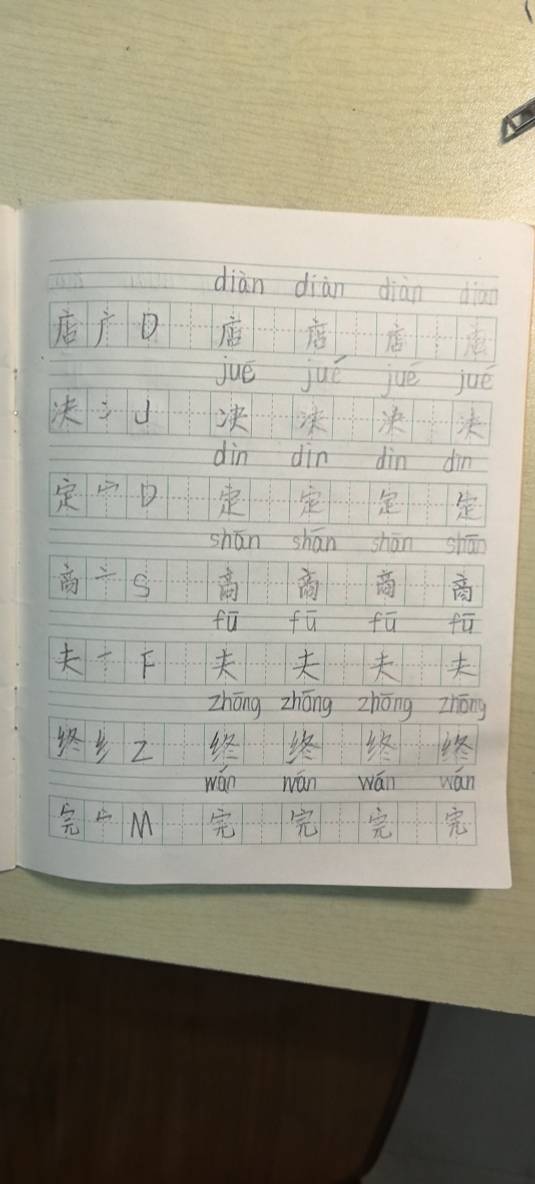 diàn diàn diàn diàn
店 广 D 店 店 店 店
jué jué jué jué
决 冫 J 决 决 决 决
dìn dìn dìn dìn
定 宀 D 定 定 定 定
shān shān shān shān
商 亠 S 商 商 商 商
fū fū fū fū
夫 一 F 夫 夫 夫 夫
zhōng zhōng zhōng zhōng
终 纟 Z 终 终 终 终
wán wán wán wán
完 宀 M 完 完 完 完